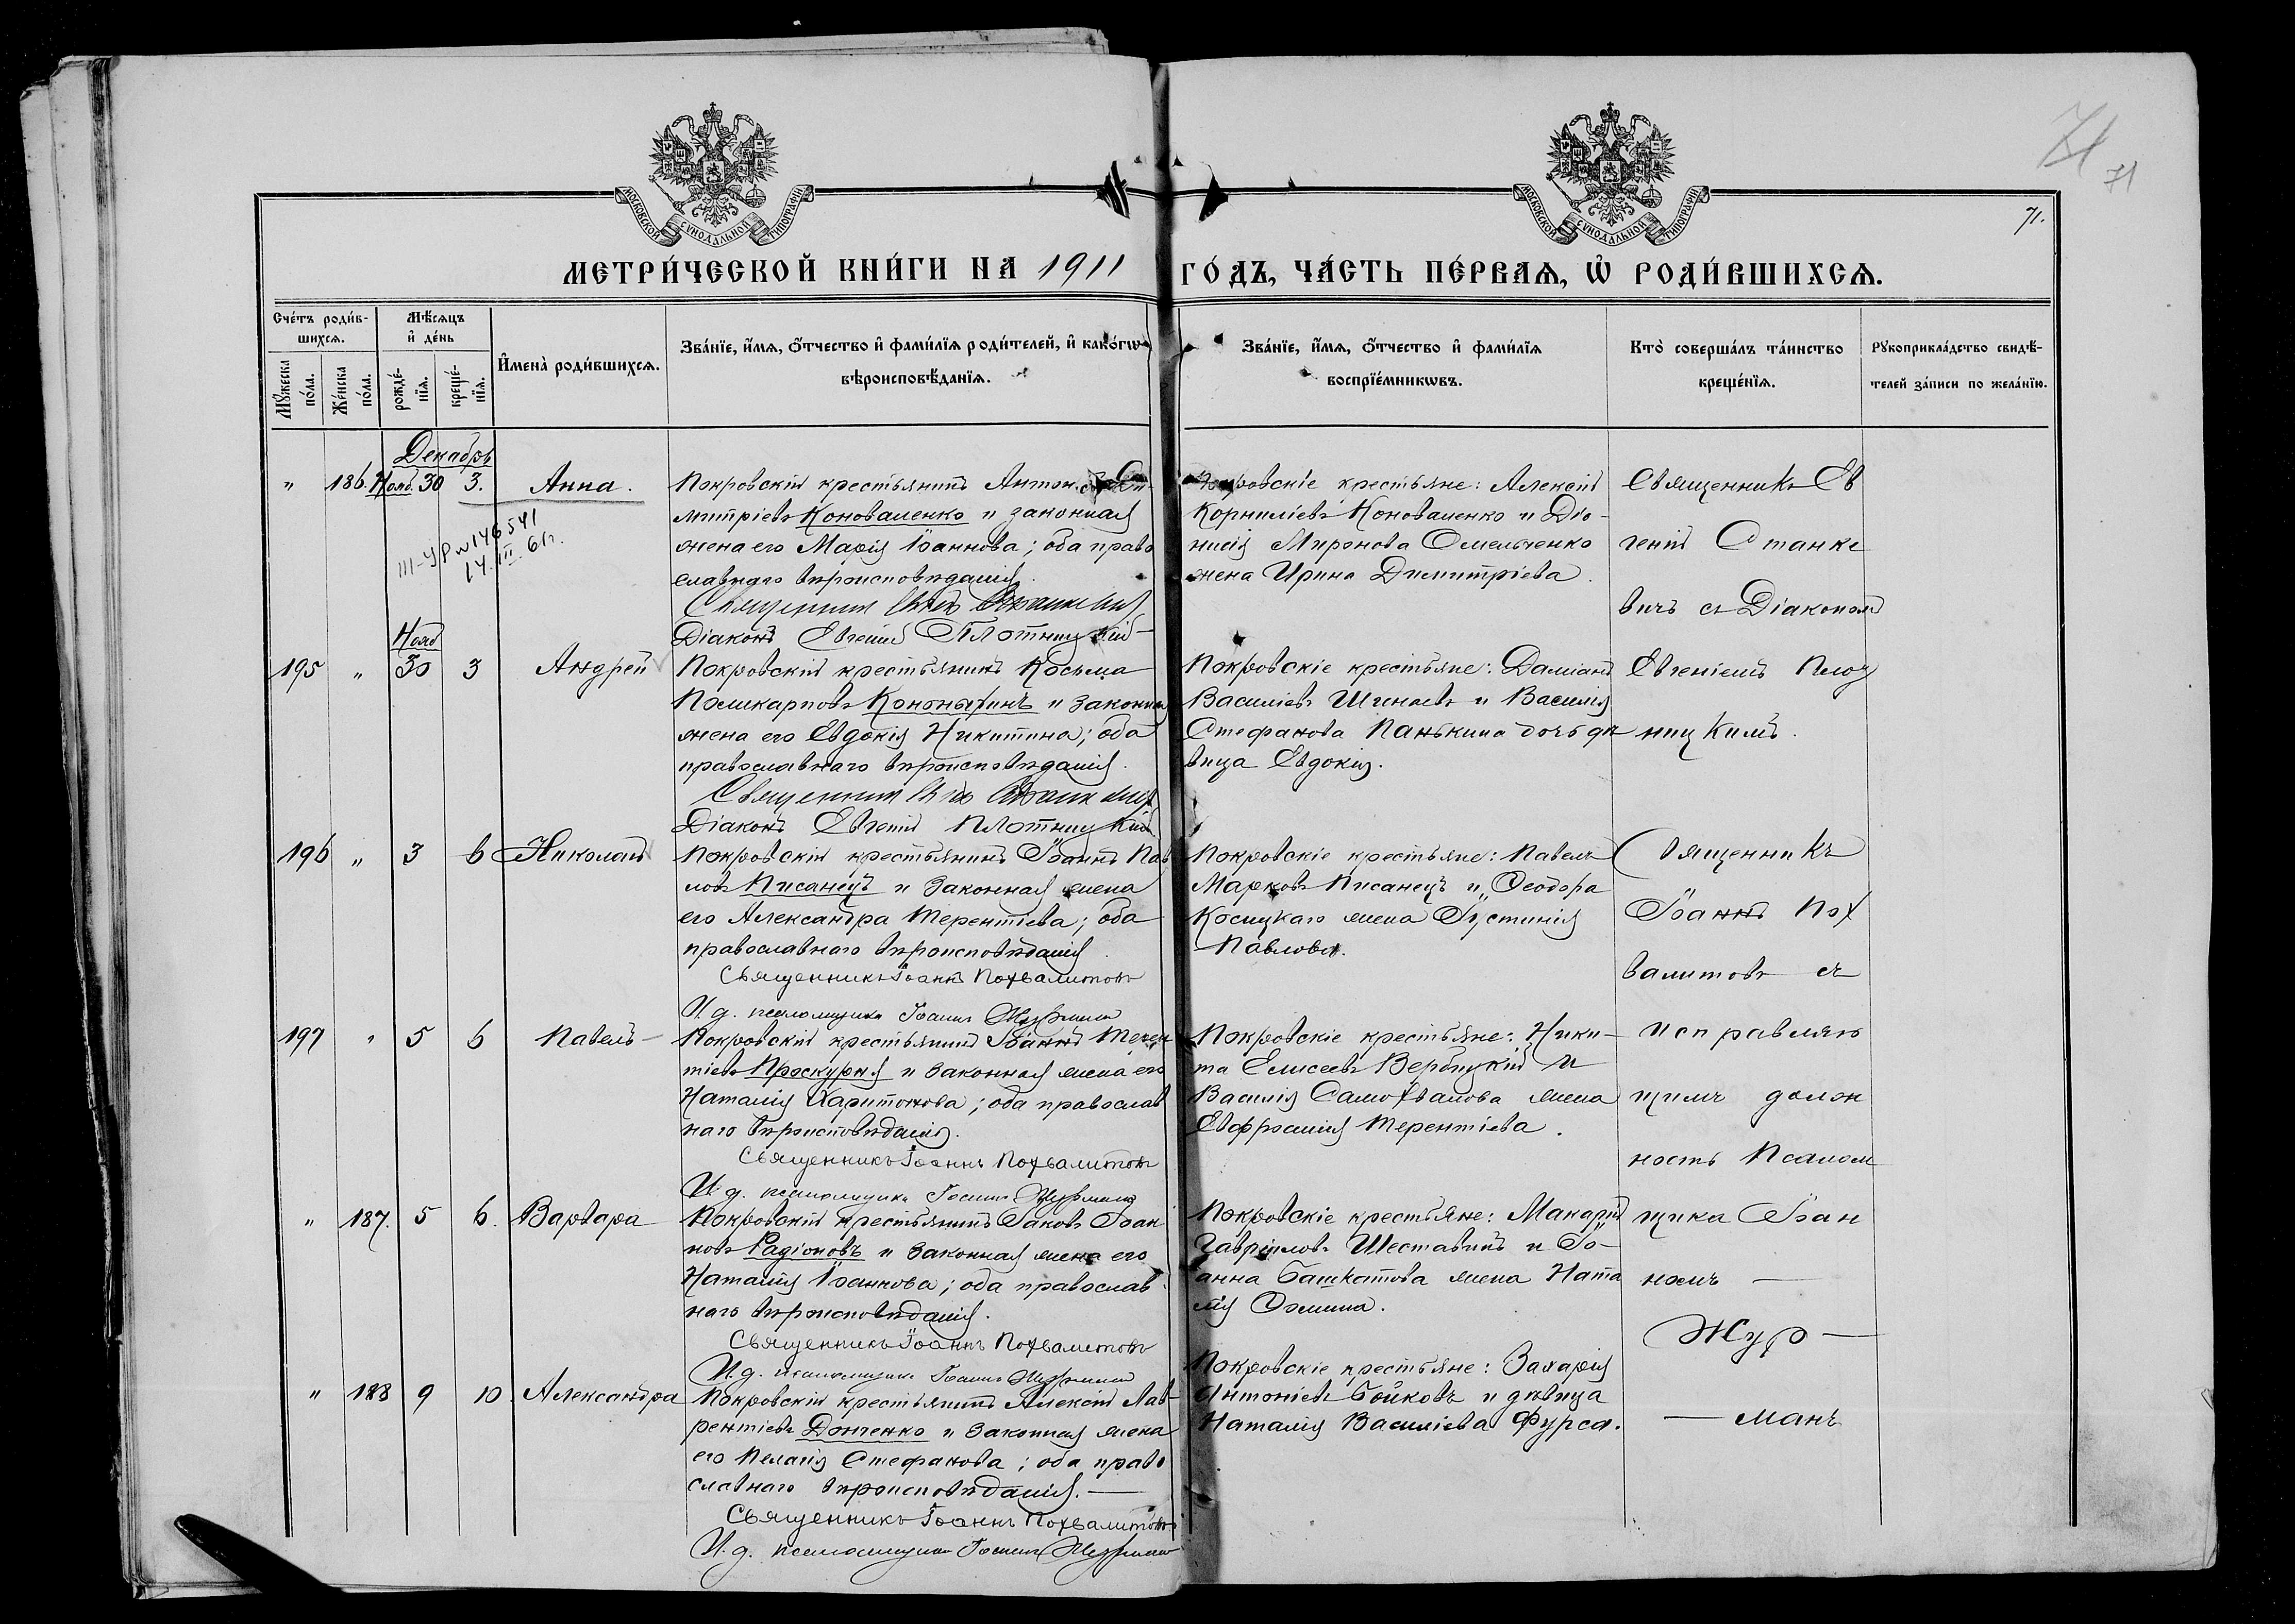 71
71
71.
МОСКОВСКОЙ СѴНОДАЛЬНОЙ ТИПОГРАФІИ
МОСКОВСКОЙ СѴНОДАЛЬНОЙ ТИПОГРАФІИ
МЕТРИ́ЧЕСКОЙ КНИ́ГИ НА 1911 ГО́ДЪ, ЧА́СТЬ ПЕ́РВАѦ, Ѡ҆ РОДИ́ВШИХСѦ.
Сче́тъ роди́в-
шихсѧ.
Мѣ́сѧцъ
и҆ де́нь
Мꙋ́жеска
по́ла.
Же́нска
по́ла.
рожде́-
нїѧ.
креще́-
нїѧ.
И҆мена̀ роди́вшихсѧ.
Зва́нїе, и҆́мѧ, ѻ҆́тчество и҆ фами́лїѧ роди́телей, и҆ како́гѡ
вѣроисповѣ́данїѧ.
Зва́нїе, и҆́мѧ, ѻ҆́тчество и҆ фами́лїѧ
воспрїе́мникѡвъ.
Кто̀ соверша́лъ та́инство
креще́нїѧ.
Рꙋкоприкла́дство свидѣ́-
телей за́писи по жела́нїю.
Декабрь
" 186. Нояб. 30 3. Анна.
III-УР №146541
14.III.61г.
Покровскій крестьянинъ Антон
митріевъ Коноваленко и законная
жена его Марія Іоаннова; оба право
славнаго вѣроисповѣданія.
Священникъ
Діаконъ Евгеній Плотницкій
Покровскіе крестьяне: Алексій
Корниліевъ Коноваленко и Діо-
нисія Миронова Омельченко
жена Ирина Димитріева.
Священникъ Ев
геній Станке
вичъ съ Діакономъ
Нояб
195 " 30 3 Андрей
Покровскій крестьянинъ Косьма
Поликарповъ Кононыхинъ и законная
жена его Евдокія Никитина; оба
православнаго вѣроисповѣданія.
Священникъ
Діаконъ Евгеній Плотницкій
Покровскіе крестьяне: Даміанъ
Василіевъ Шинаевъ и Василія
Стефанова Панькина дочь дѣ
вица Евдокія.
Евгеніемъ Плот
ницкимъ.
196 " 3 6 Николай
Покровскій крестьянинъ Іоаннъ Пав
ловъ Писанецъ и законная жена
его Александра Терентіева; оба
православнаго вѣроисповѣданія.
Священникъ Іоаннъ Похвалитовъ
И. д. псаломщика Іоаннъ Журманъ
Покровскіе крестьяне: Павелъ
Марковъ Писанецъ и Ѳеодора
Косицкаго жена Іустинія
Павлова.
Священникъ
Іоаннъ Пох
валитовъ съ
197 " 5 6 Павелъ
Покровскій крестьянинъ Іоаннъ Терен
тіевъ Проскурня и законная жена его
Наталія Харитонова; оба православ
наго вѣроисповѣданія.
Священникъ Іоаннъ Похвалитовъ
И. д. псаломщика Іоаннъ Журманъ
Покровскіе крестьяне: Ники-
та Елисеевъ Вербицкій и
Василія Самохвалова жена
Евфросинія Терентіева.
исправляю
щимъ долж
ность Псалом
" 187. 5 6. Варвара
Покровскій крестьянинъ Іаковъ Іоан
новъ Радіоновъ и законная жена его
Наталія Іоаннова; оба православ
наго вѣроисповѣданія.
Священникъ Іоаннъ Похвалитовъ
И. д. псаломщика Іоаннъ Журманъ
Покровскіе крестьяне: Макарій
Гавріиловъ Шеставинъ и Іо-
анна Башкатова жена Ната
лія Ѳомина.
щика Іоан
номъ —
Жур —
" 188 9 10. Александра
Покровскій крестьянинъ Алексій Лав-
рентіевъ Донченко и законная жена
его Пелагія Стефанова; оба право
славнаго вѣроисповѣданія. —
Священникъ Іоаннъ Похвалитовъ
И. д. псаломщика Іоаннъ Журманъ
Покровскіе крестьяне: Захарія
Антоніевъ Бойковъ и дѣвица
Наталія Василіева Фурса.
— манъ